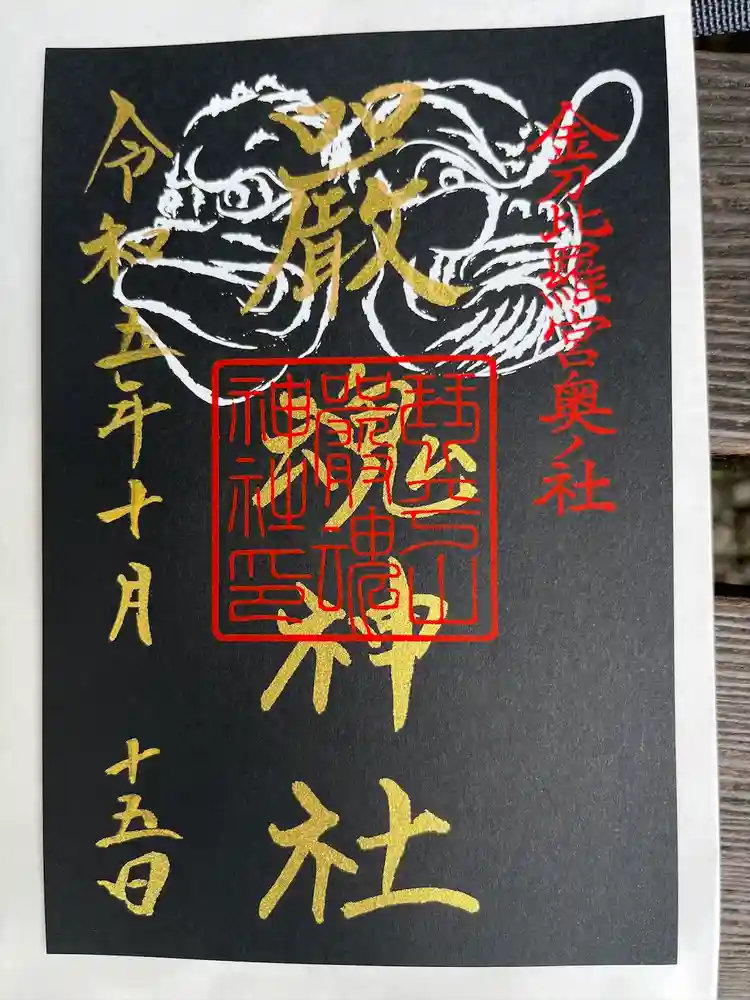 金刀比羅宮奥ノ社
嚴魂神社
琴平山
嚴魂
神社印
令和五年十月 十五日